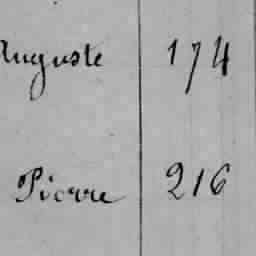 Auguste 174
Pierre 216